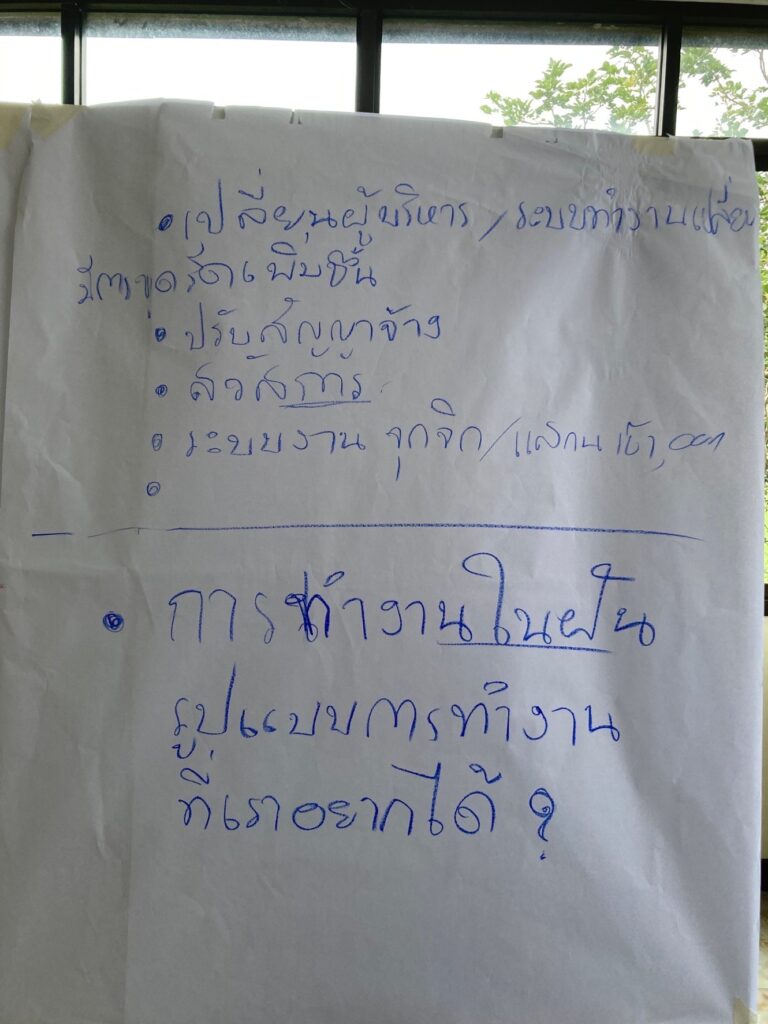 • เปลี่ยนผู้บริหาร / ระบบทำงานเปลี่ยน
มีการขูดรีดเพิ่มขึ้น
• ปรับสัญญาจ้าง
• สวัสดิการ
• ระบบงาน จุกจิก / แสกน เข้า, ออก
•
• การทำงานในฝัน
รูปแบบการทำงาน
ที่เราอยากได้ ?